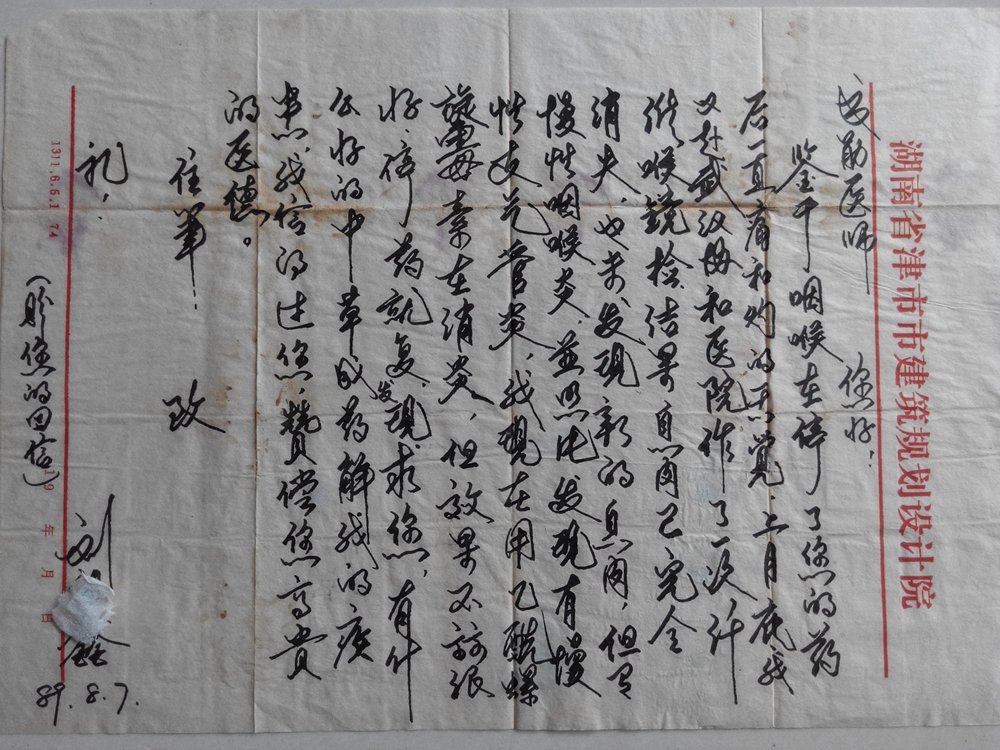 湖南省津市市建筑规划设计院
医师 您好！
鉴于咽喉在停了您的药
后一直痛和灼的感觉，上月底我
又赴武汉协和医院作了一次纤
维喉镜检结果息肉已完全
消失，也未发现新的息肉，但有
慢性咽喉炎，并照片发现有慢
性支气管炎，我现在用乙酰螺
旋霉素在消炎，但效果不够很
好，停药就复发，现求您，有什
么好的中草成药解我的疾
患，我信的过您，赞偿您高贵
的医德。
住笔！ 致
礼！
刘
89.8.7.
（盼您的回信）
19 年 月 日
1311.6.5.1 74